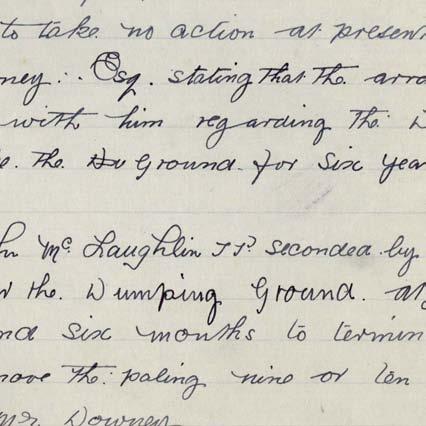 to take no action at present
ney: Esq. stating that the arra
with him regarding the D
e. the Du Ground. for six year
hn Mc Laughlin J.P. seconded by
the. Dumping Ground. at
nd six months to termin
ove the: paling nine or ten
Mr. Downey